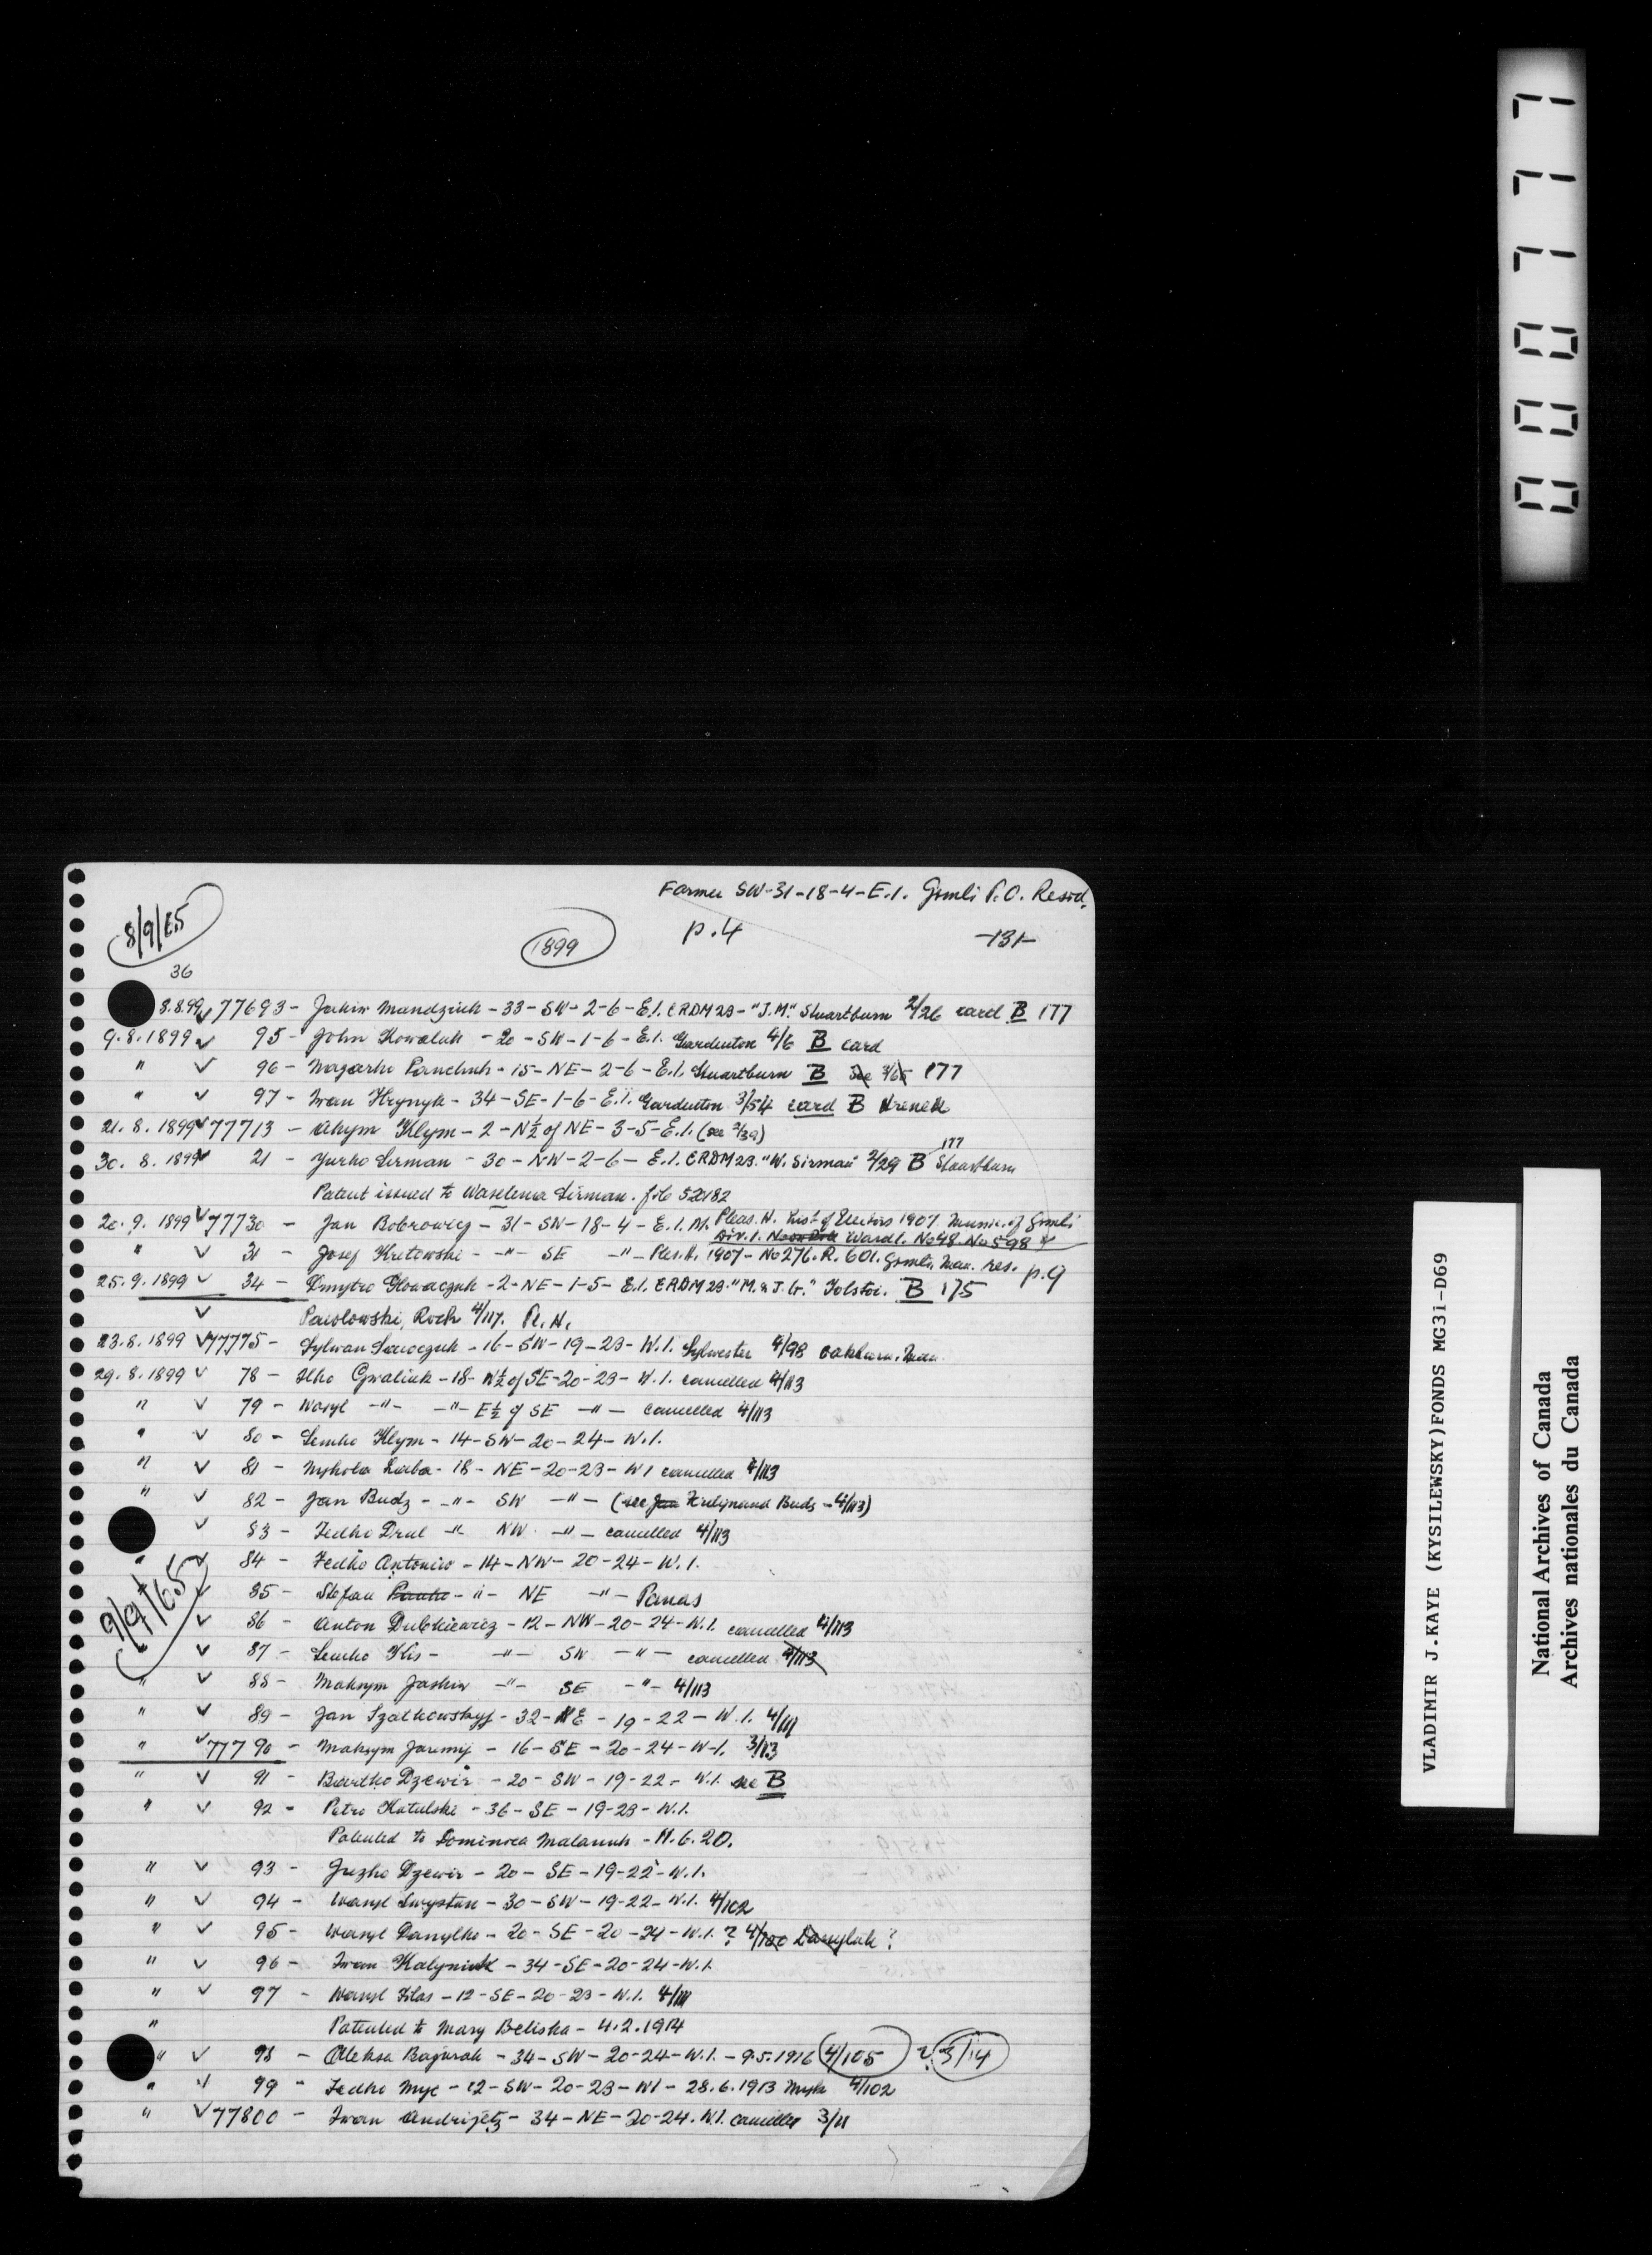 Farmer SW-31-18-4-E.1. Gimli P.O. Resid.
8/9/65
1899
p.4
-131-
36
8.8.99 ✓ 77693 - Jakiw Mandziuk - 33 - SW - 2-6 - E.1. ERDM23 - "J.M." Stuartburn 2/26 card B 177
9.8.1899 ✓ 95 - John Kowaluk - 20 - SW - 1-6 - E.1. Gardenton 4/6 B card
" ✓ 96 - Panchuk - 15 - NE - 2-6 - E.1. Stuartburn B See 3/65 177
" ✓ 97 - Iwan Hrynyk - 34 - SE - 1-6 - E.1. Gardenton 3/54 card B
21.8.1899 ✓ 77713 - Akym Klym - 2 - N½ of NE - 3-5 - E.1. (see 2/39)
30.8.1899 ✓ 21 - Yurko Sirman - 30 - NW - 2-6 - E.1. ERDM23. "W. Sirman" 2/29 B 177 Stuartburn
Patent issued to Waselena Sirman. file 522182
20.9.1899 ✓ 77730 - Jan Bobrowicz - 31 - SW - 18 - 4 - E.1. M. Pleas. H. List of Electors 1907 Munic. of Gimli
Div. 1. Ward 1. No 48. No 598
" ✓ 31 - Josef Kretowski - " - SE - " - Ples. H. 1907 - No 276. R. 601. Gimli, Man. res. p.9
25.9.1899 ✓ 34 - Dmytro Glowaczuk - 2 - NE - 1-5 - E.1. ERDM23. "M. & J. G." Tolstoi. B 175
✓ Pawlowski, Roch 4/117. Pl. H.
23.8.1899 ✓ 77775 - Sylwan - 16 - SW - 19 - 23 - W.1. Sylwester 4/98 Oakburn, Man.
29.8.1899 ✓ 78 - Ilko Gwaliuk - 18 - W½ of SE - 20 - 23 - W.1. cancelled 4/113
" ✓ 79 - Wasyl - " - - " - E½ of SE - " - cancelled 4/113
" ✓ 80 - Semko Klym - 14 - SW - 20 - 24 - W.1.
" ✓ 81 - Mykola Laba - 18 - NE - 20-23 - W1 cancelled 4/113
" ✓ 82 - Jan Budz - " - SW - " - (see Jan Budz - 4/113)
✓ 83 - Fedko Drul - " NW - " - cancelled 4/113
" ✓ 84 - Fedko Antoniw - 14 - NW - 20-24 - W.1.
9/9/65
✓ 85 - Stefan - " - NE - " - Panas
✓ 86 - Anton Dubkiewicz - 12 - NW - 20-24 - W.1. cancelled 4/113
✓ 87 - Semko Klis - - " - SW - " - cancelled 4/113
" ✓ 88 - Maksym Jaskiw - " - SE - " - 4/113
" ✓ 89 - Jan Szatkowskyj - 32 - NE - 19 - 22 - W.1. 4/111
" ✓ 77790 - Maksym Jaremij - 16 - SE - 20 - 24 - W.1. 3/13
" ✓ 91 - Bartko Dzewir - 20 - SW - 19-22 - W.1. see B
" ✓ 92 - Petro Katulski - 36 - SE - 19-23 - W.1.
Patented to Dominica - 11.6.20.
" ✓ 93 - Juzko Dzewir - 20 - SE - 19-22 - W.1.
" ✓ 94 - Wasyl Swystun - 30 - SW - 19-22 - W.1. 4/102
" ✓ 95 - Wasyl Danylko - 20 - SE - 20-24 - W.1. ? 4/100 Danyluk?
" ✓ 96 - Iwan Kalyniuk - 34 - SE - 20-24 - W.1.
" ✓ 97 - Wasyl Filas - 12 - SE - 20-23 - W.1. 4/111
" Patented to Mary Beliska - 4.2.1914
" ✓ 98 - Oleksa Bagurak - 34 - SW - 20-24 - W.1. - 9.5.1916 4/105 ? 3/14
" ✓ 99 - Fedko Myc - 12 - SW - 20-23 - W1 - 28.6.1913 4/102
" ✓ 77800 - Iwan Andrijetz - 34 - NE - 20-24. W.1. cancelled 3/11
000777
VLADIMIR J.KAYE (KYSILEWSKY)FONDS MG31-D69
National Archives of Canada
Archives nationales du Canada